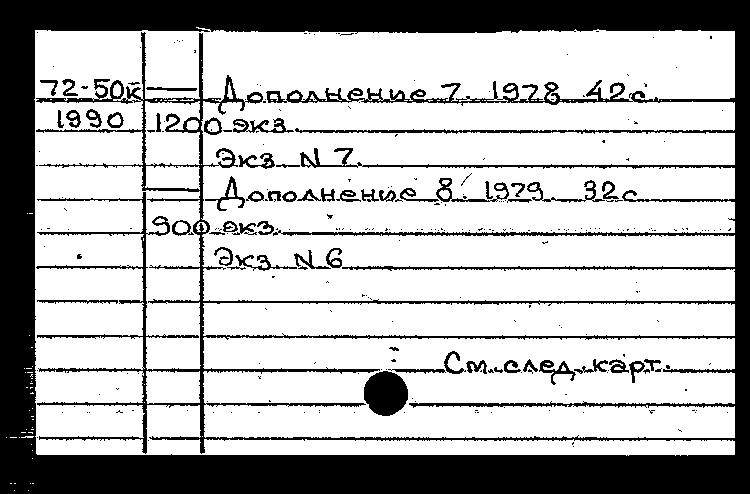 72-50к — Дополнение 7. 1978 42с.
1990 1200 экз.
Экз. N 7.
— Дополнение 8. 1979. 32с
900 экз.
Экз. N 6
См. след. карт.